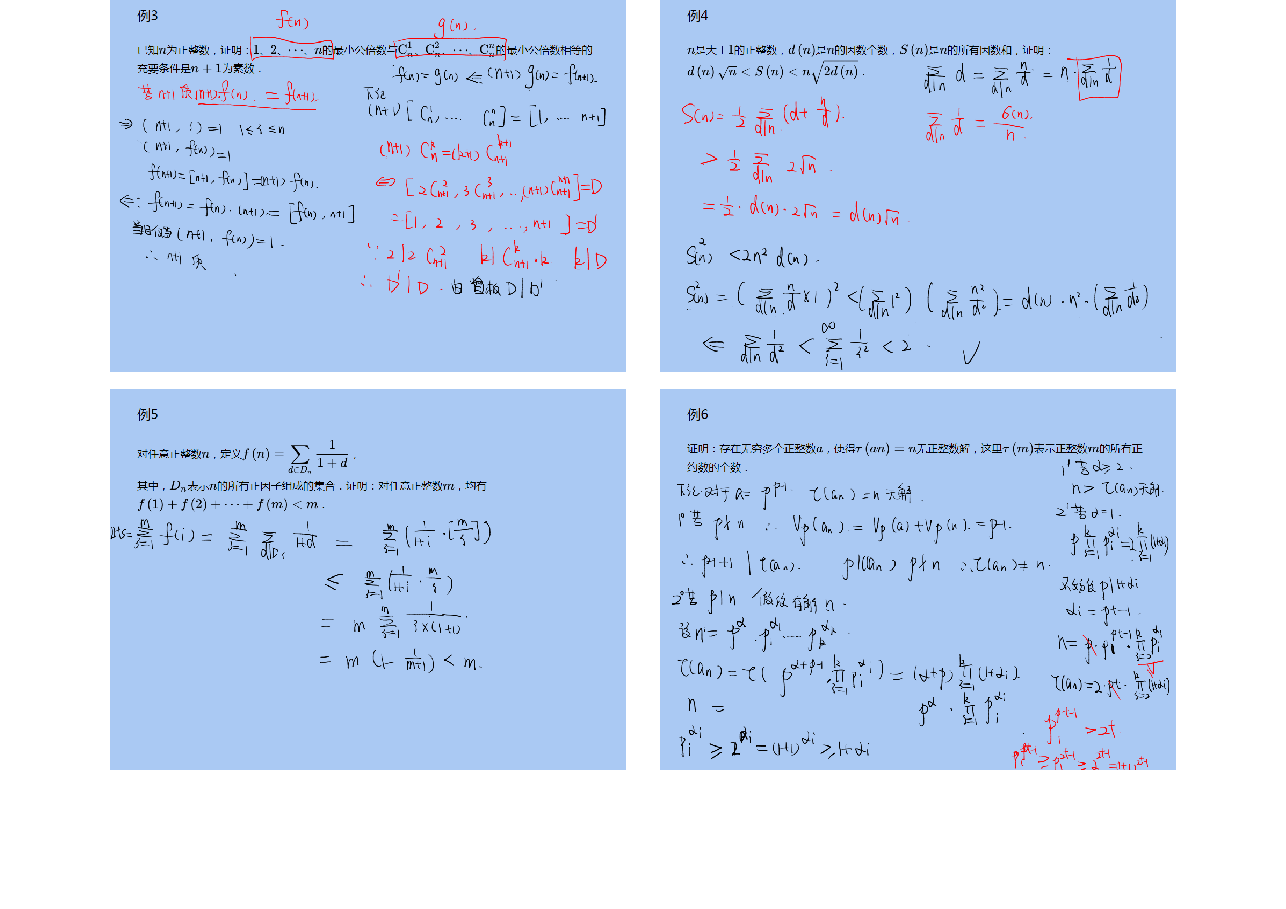 例3
f(n)
g(n).
已知n为正整数，证明：1、2、⋯、n的最小公倍数与C_n^1、C_n^2、⋯、C_n^n的最小公倍数相等的
充要条件是n+1为素数.
f(n)=g(n) ⇐ (n+1)g(n)=f(n+1).
若 n+1 质 (n+1)f(n).=f(n+1).
(n+1)[C_n^1,.... C_n^n]=[1,... n+1]
⇒ (n+1, i)=1 1≤i≤n
(n+1, f(n))=1
f(n+1)=[n+1, f(n)]=(n+1)f(n).
⇐: f(n+1)=f(n)·(n+1)=[f(n), n+1]
(n+1, f(n))=1.
∴ n+1 质
(n+1)C_n^k=(k+1)C_{n+1}^{k+1}
⇔[2C_{n+1}^2, 3C_{n+1}^3,..,(n+1)C_{n+1}^{n+1}]=D
=[1, 2, 3, ..., n+1]=D'
∵ 2|2C_{n+1}^2 k|C_{n+1}^k·k k|D
∴ D'|D. D|D'
例4
n是大于1的正整数，d(n)是n的因数个数，S(n)是n的所有因数和，证明：
d(n)√n<S(n)<n√(2d(n)).
∑_{d|n} d=∑_{d|n} n/d=n·∑_{d|n} 1/d
S(n)=1/2 ∑_{d|n}(d+n/d).
∑_{d|n} 1/d=σ(n)/n.
>1/2 ∑_{d|n} 2√n.
=1/2·d(n)·2√n=d(n)√n.
S²(n)<2n²d(n).
S²(n)=(∑_{d|n} n/d×1)²<(∑_{d|n}1²)(∑_{d|n} n²/d²)=d(n)·n²·(∑_{d|n} 1/d²)
⇐ ∑_{d|n} 1/d²<∑_{i=1}^∞ 1/i²<2. √
例5
对任意正整数n，定义f(n)=∑_{d∈D_n} 1/(1+d).
其中，D_n表示n的所有正因子组成的集合，证明：对任意正整数m，均有
f(1)+f(2)+⋯+f(m)<m.
LHS=∑_{i=1}^m f(i)=∑_{i=1}^m ∑_{d|D_i} 1/(1+d)=∑_{i=1}^m(1/(1+i)·[m/i])
≤∑_{i=1}^m(1/(1+i)·m/i)
=m∑_{i=1}^m 1/(i×(i+1))
=m(1-1/(m+1))<m.
例6
证明：存在无穷多个正整数a，使得τ(an)=n无正整数解，这里τ(m)表示正整数m的所有正
约数的个数.
下证对于a=p^{p-1} τ(an)=n 无解.
1°若 p∤n ∴ Vp(an)=Vp(a)+Vp(n)=p-1.
∴ p-1+1|τ(an). p|τ(an) p∤n ∴τ(an)≠n.
2°若 p|n 假设有解n.
设n=p^α·p_1^{α_1}.....p_k^{α_k}.
τ(an)=τ(p^{α+p-1}·∏_{i=1}^k p_i^{α_i})=(α+p)∏_{i=1}^k(1+α_i)
n = p^α·∏_{i=1}^k p_i^{α_i}
p_i^{α_i}≥2^{α_i}=(1+1)^{α_i}≥1+α_i
1°若α≥2.
n>τ(an)无解.
2°若α=1.
p∏_{i=1}^k p_i^{α_i}=2∏_{i=1}^k(1+α_i)
不妨设p|1+α_1
α_1=pt-1.
n=p·p_1^{pt-1}·∏_{i=2}^k p_i^{α_i}
τ(an)=2·pt·∏_{i=2}^k(1+α_i)
p_1^{pt-1}>2t